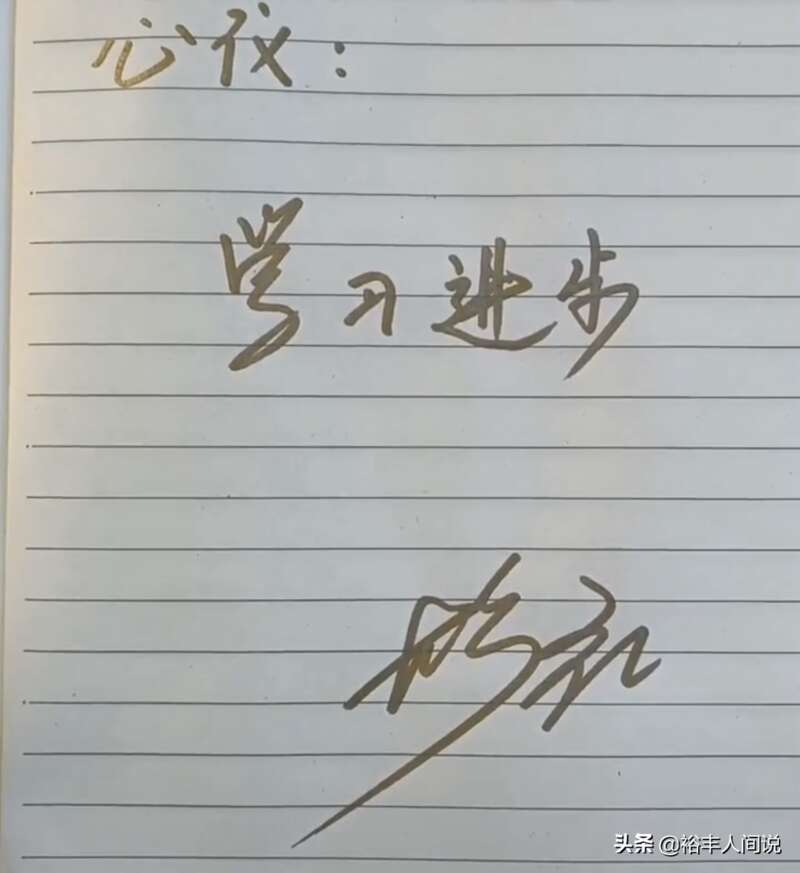 心仪：
学习进步
头条 @裕丰人间说